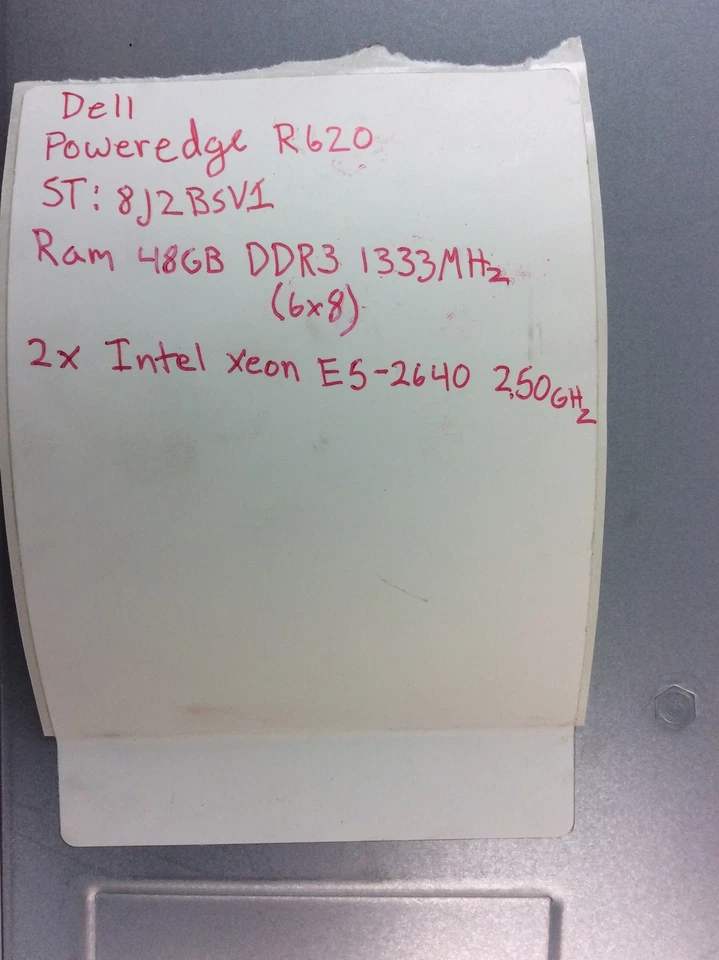 Dell
Poweredge R620
ST: 8J2BSV1
Ram 48GB DDR3 1333MHz
(6x8)
2x Intel Xeon E5-2640 2.50GHz